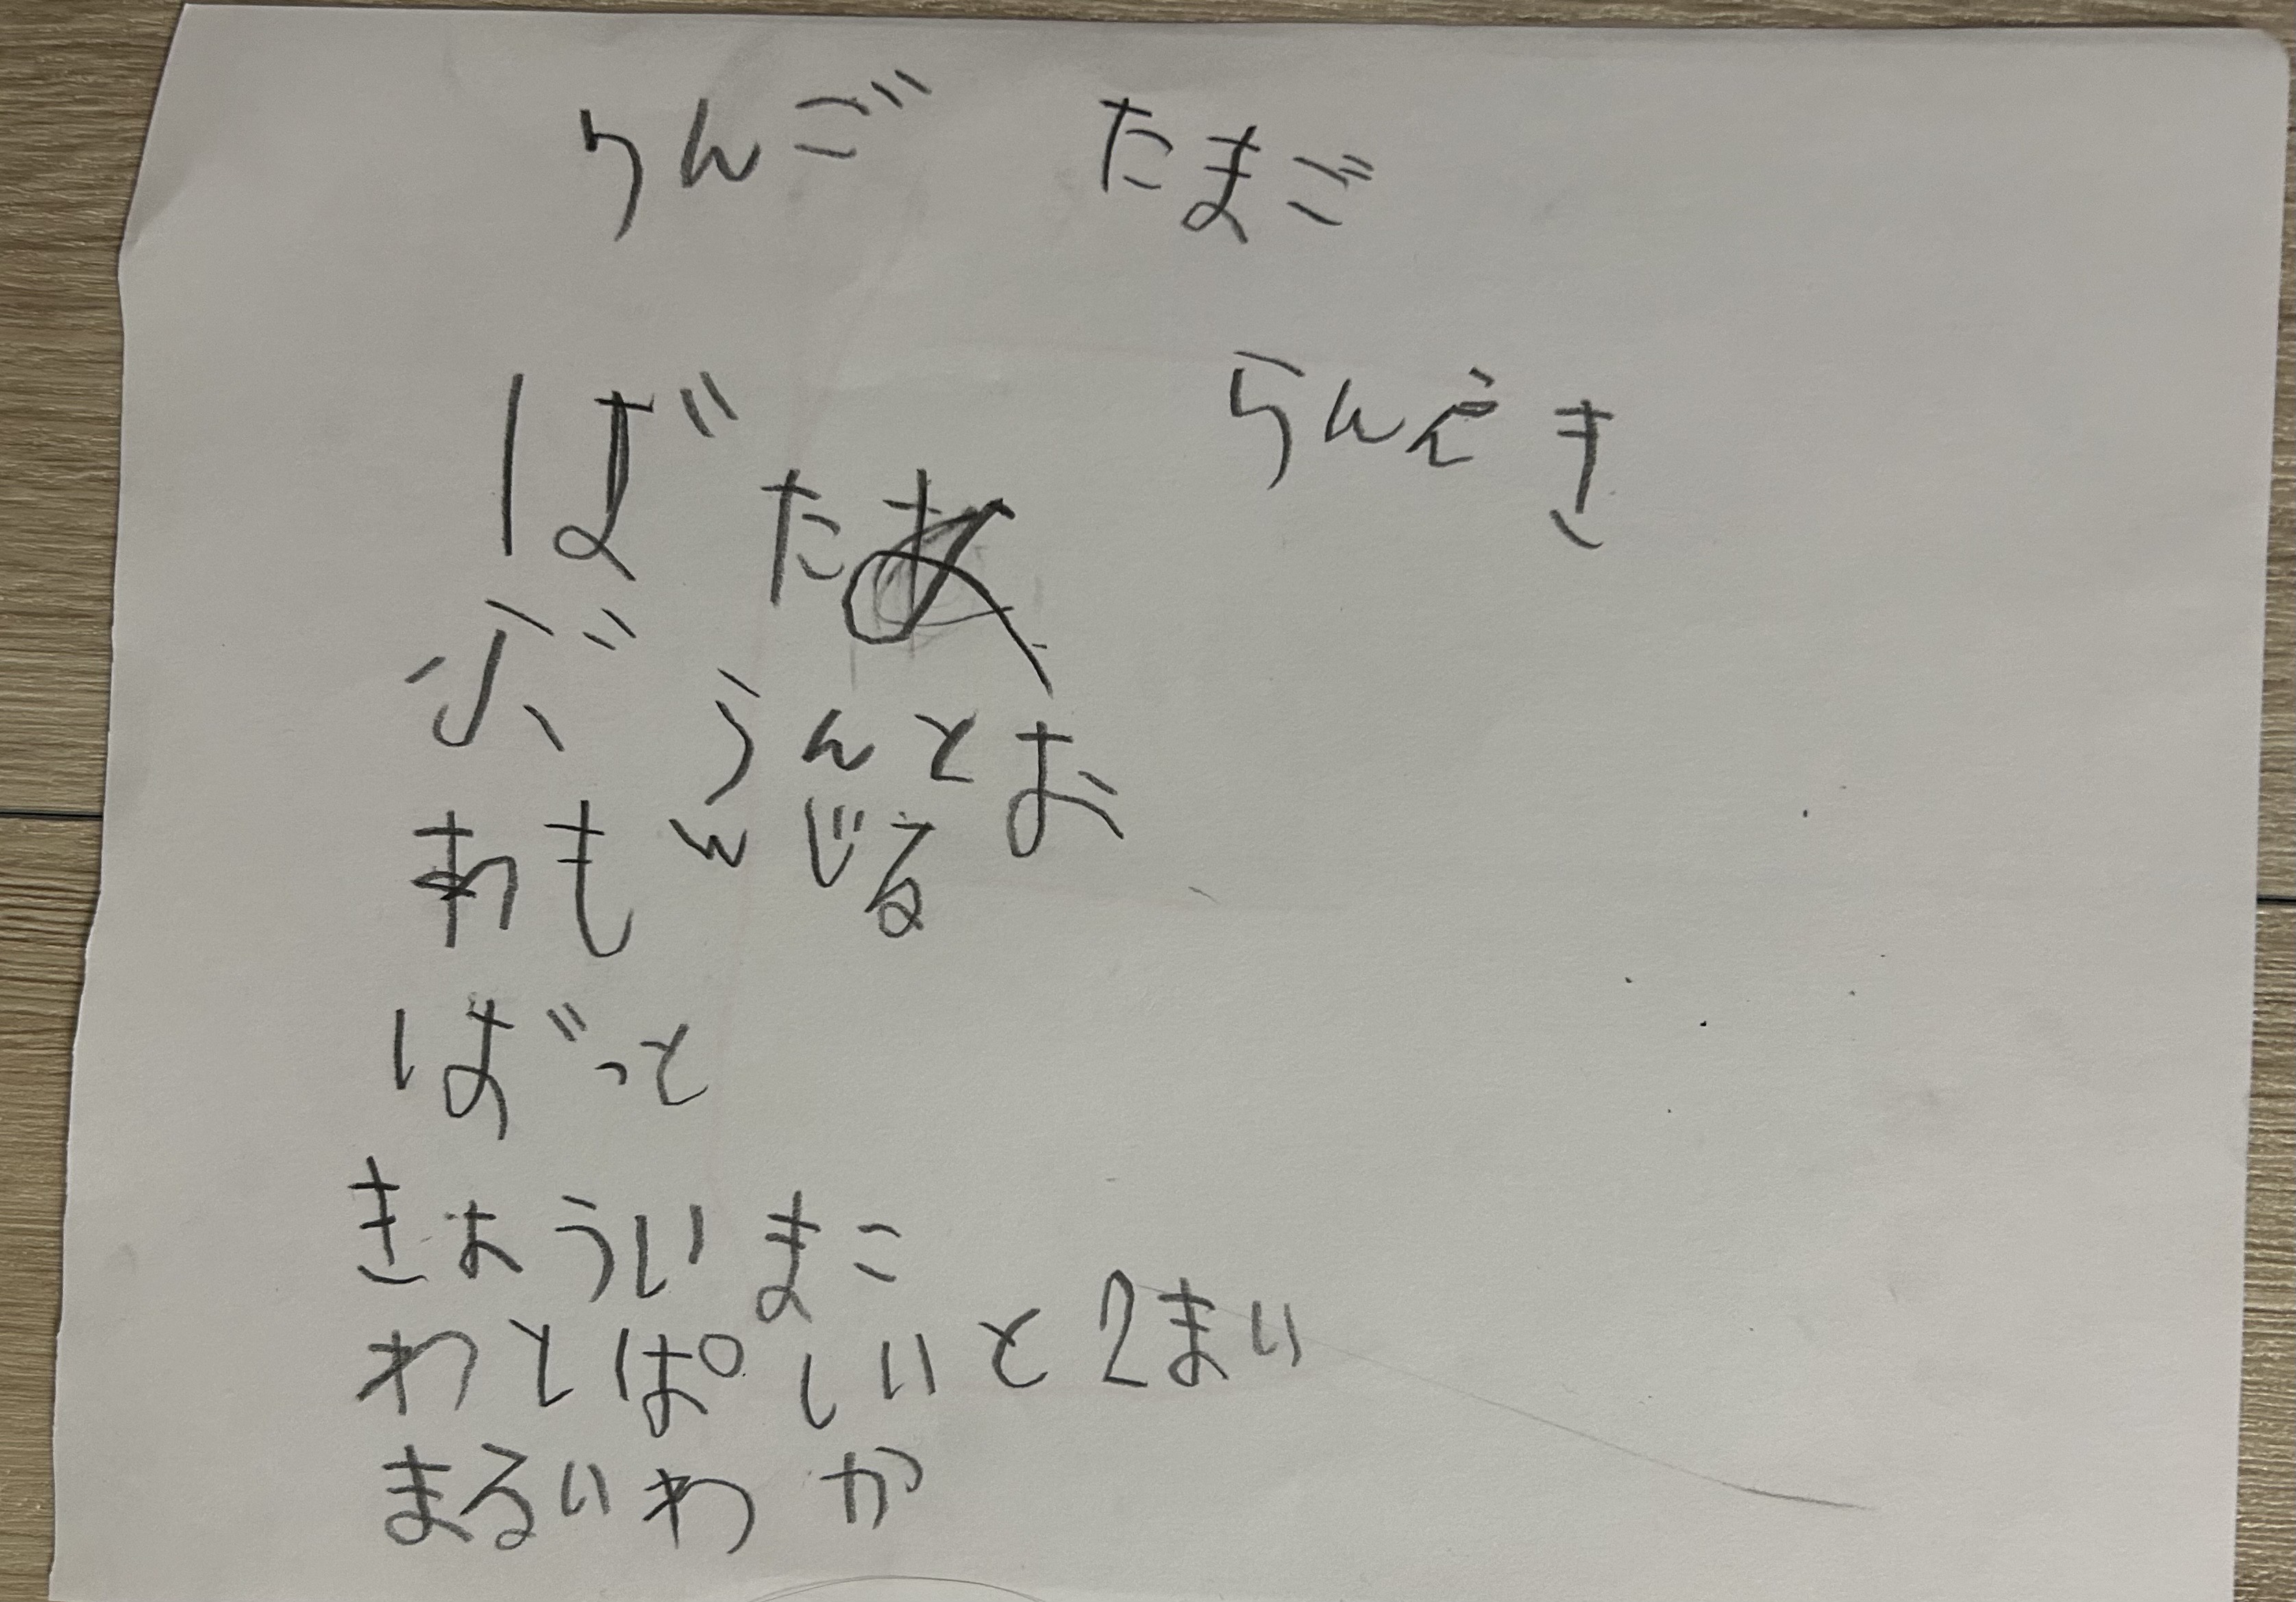 りんご たまご
ばたあ らんえき
ぶうんとお
れもんじる
ばっと
きょういまこ
わとぱいしと2まい
まるいわか